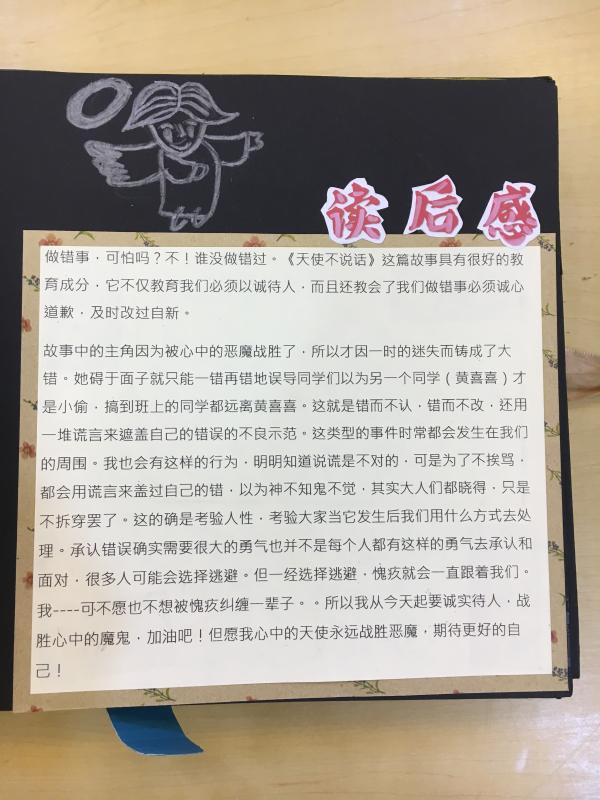 读后感
做错事，可怕吗？不！谁没做错过。《天使不说话》这篇故事具有很好的教
育成分，它不仅教育我们必须以诚待人，而且还教会了我们做错事必须诚心
道歉，及时改过自新。
故事中的主角因为被心中的恶魔战胜了，所以才因一时的迷失而铸成了大
错。她碍于面子就只能一错再错地误导同学们以为另一个同学（黄喜喜）才
是小偷，搞到班上的同学都远离黄喜喜。这就是错而不认，错而不改，还用
一堆谎言来遮盖自己的错误的不良示范。这类型的事件时常都会发生在我们
的周围。我也会有这样的行为，明明知道说谎是不对的，可是为了不挨骂，
都会用谎言来盖过自己的错，以为神不知鬼不觉，其实大人们都晓得，只是
不拆穿罢了。这的确是考验人性，考验大家当它发生后我们用什么方式去处
理。承认错误确实需要很大的勇气也并不是每个人都有这样的勇气去承认和
面对，很多人可能会选择逃避。但一经选择逃避，愧疚就会一直跟着我们。
我----可不愿也不想被愧疚纠缠一辈子。。所以我从今天起要诚实待人，战
胜心中的魔鬼，加油吧！但愿我心中的天使永远战胜恶魔，期待更好的自
己！